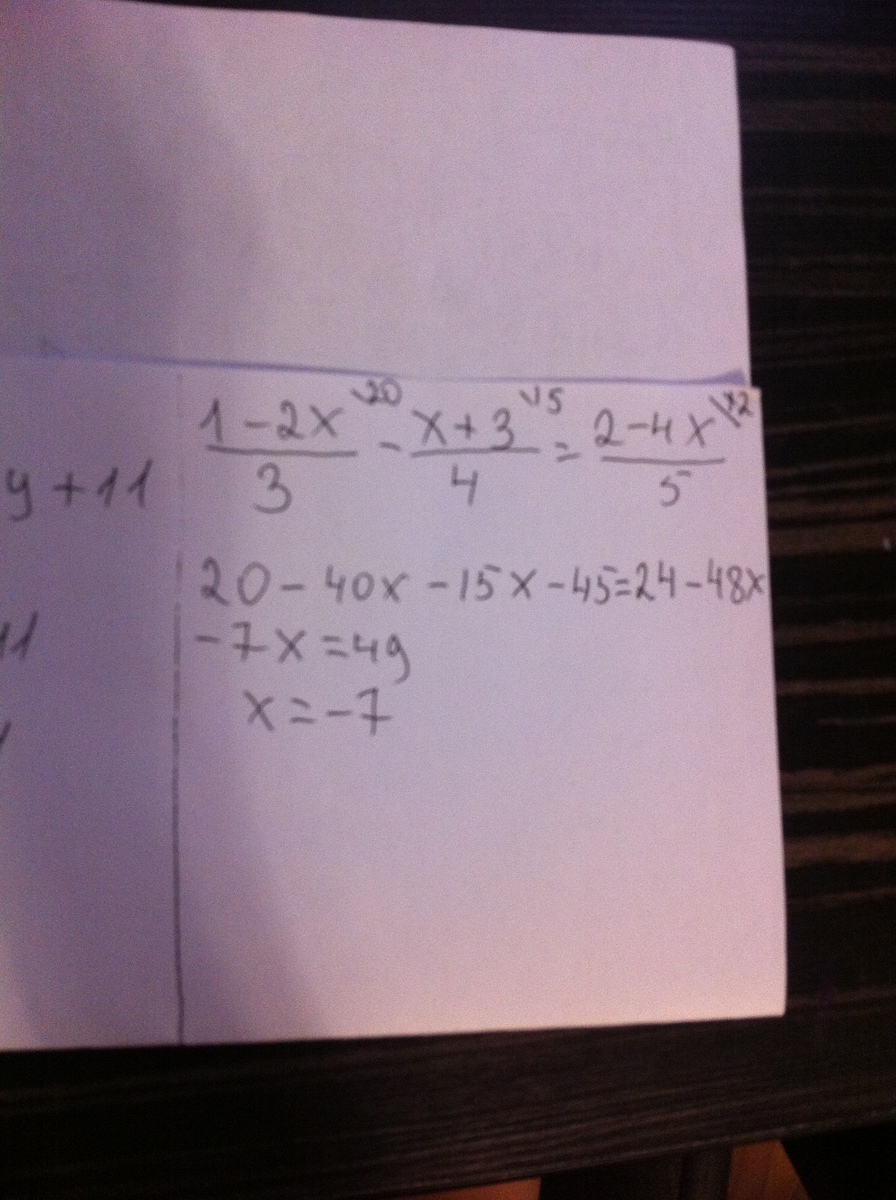 y + 11
11
1 - 2x \20 / 3 - x + 3 \15 / 4 = 2 - 4x \12 / 5
20 - 40x - 15x - 45 = 24 - 48x
-7x = 49
x = -7